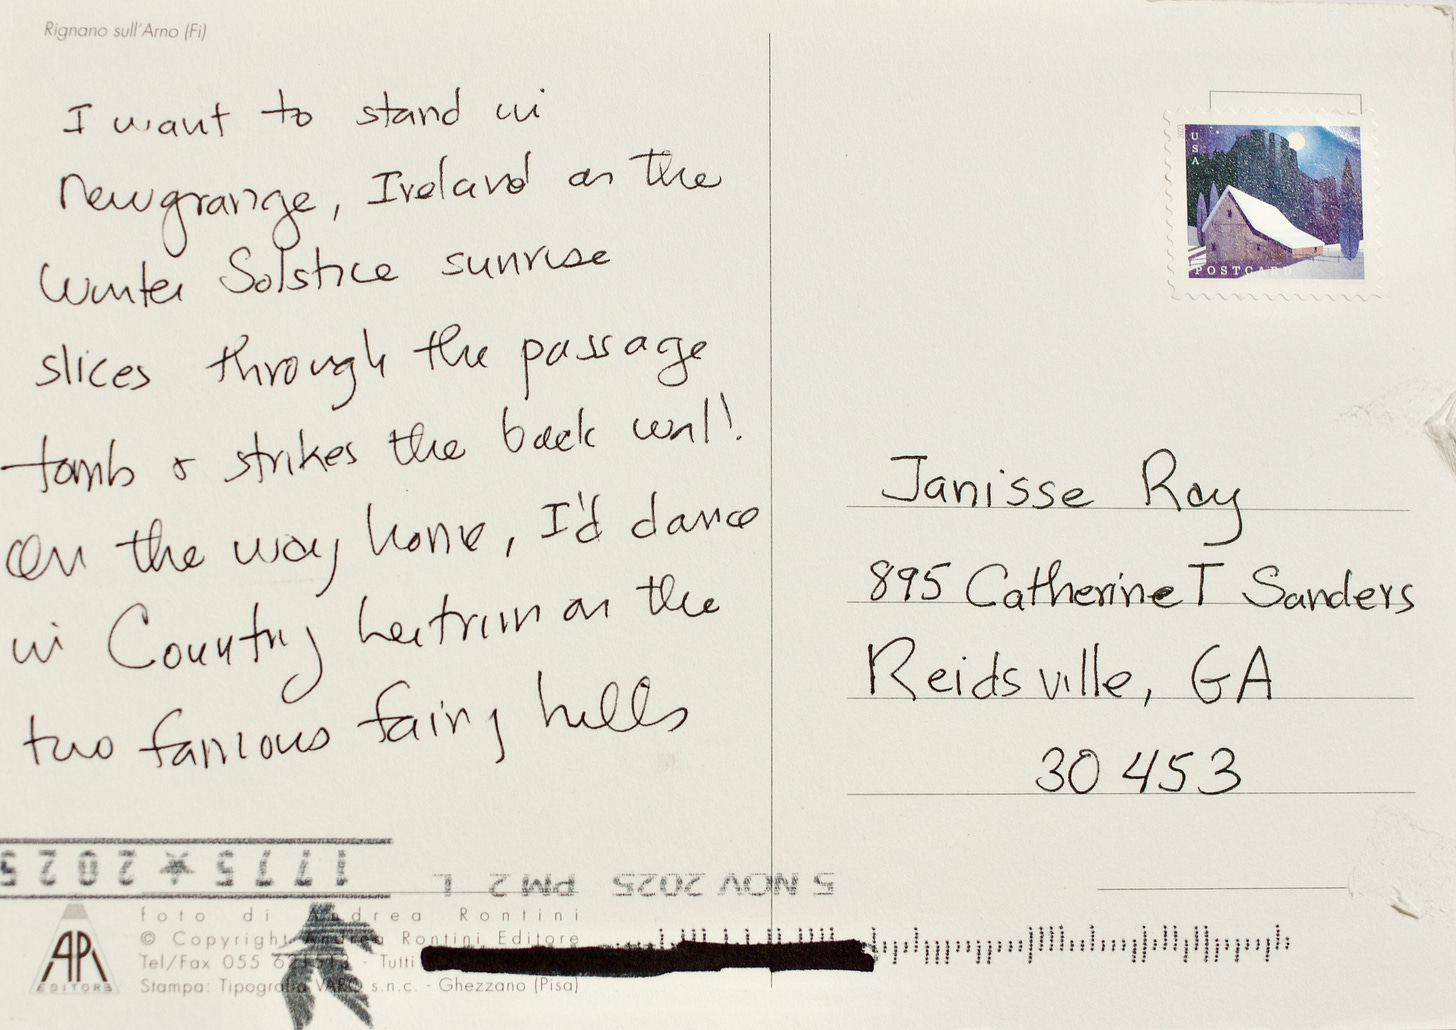 Rignano sull'Arno (Fi)
I want to stand in
newgrange, Ireland on the
Winter Solstice sunrise
slices through the passage
tomb & strikes the back wall!
On the way home, I'd dance
in Country Leitrim on the
two famous fairy hills
USA
POSTCARD
Janisse Ray
895 Catherine T Sanders
Reidsville, GA
30453
1775★2025
5 NOV 2025 PM 2 L
foto di Andrea Rontini
© Copyright Andrea Rontini Editore
Tel/Fax 055 - Tutti
Stampa: Tipografia VARO s.n.c. - Ghezzano (Pisa)
AR
EDITORE